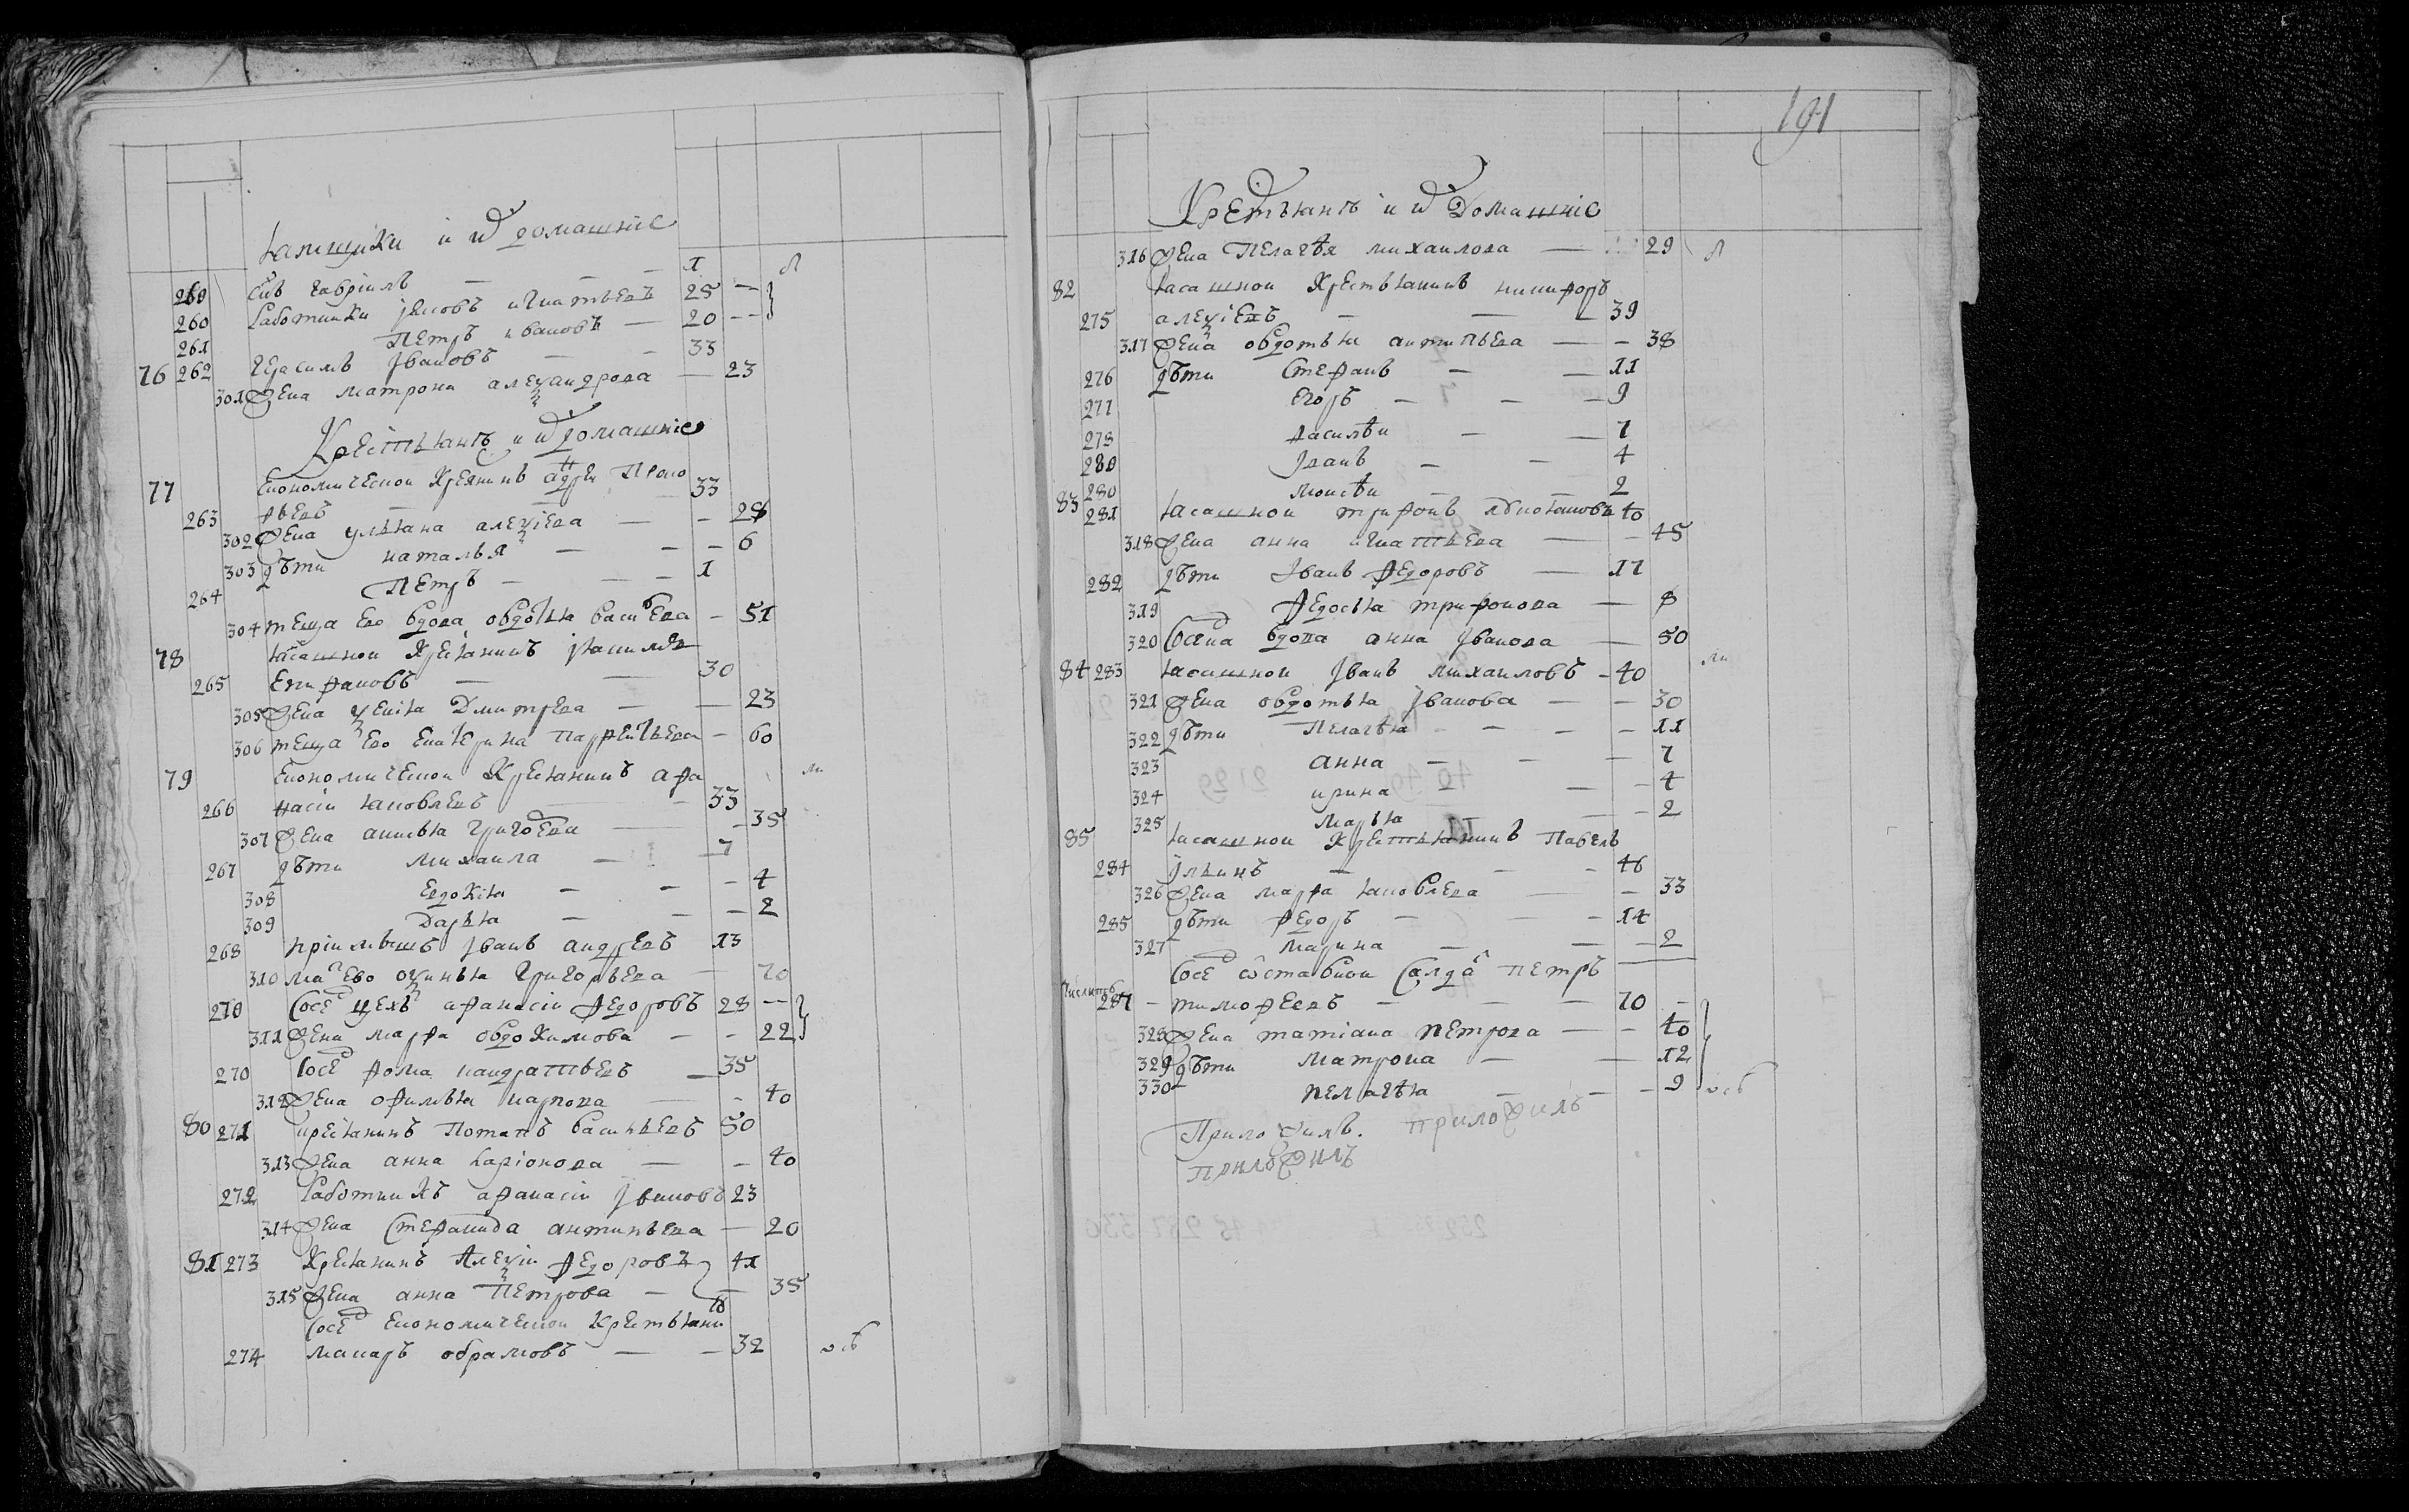 ямщики и ѿ домашніе
259 снъ гавріилъ — — — 1
260 работники яковъ игнатьевъ 25 —
261 петръ ивановъ — 20 —
76 262 герасимъ ивановъ — — 33
301 жена матрона алеѯандрова — 23
Крестьянъ и ѿ домашніе
77 економической крстянинъ адрей проко
263 фьевъ — — 33
302 жена ульяна алеѯіева — — 28
303 дѣти наталья — — — 6
264 петръ — — — 1
304 теща ево вдова овдотья василева — 51
78 ясашной крестянинъ
265 епифановъ — — 30
305 жена ѯенія дмитрева — — 23
306 теща ево екатерина парфентьева — 60
79 економической крестянинъ афа
266 насіи яковлевъ — 33
307 жена анисья григорева — — 35
267 дѣти михаила — — 7
308 евдокія — — — 4
309 дарья — — — 2
268 пріимышъ іванъ андреевъ 13
310 мать ево григорьева — 70
270 сосед цехъ афанасіи федоровъ 28 —
311 жена марфа овдокимова — — 22
270 сосед фома кандратьевъ — 35
312 жена офимья карпова — — 40
80 271 крестянинъ потапъ васильевъ 50
313 жена анна ларіонова — — 40
272 работникъ афанасіи івановъ 23
314 жена стефанида антипьева — 20
81 273 крестянинъ алеѯіи федоровъ 41
315 жена анна петрова — — 35
сосед економической крестьяни
274 макаръ обрамовъ — — 32
191
Крестьянъ и ѿ домашніе
316 жена пелагѣя михаилова — 29
82 ясашной крестьянинъ никифоръ
275 алеѯіевъ — — — 39
317 жена овдотья антипьева — — 38
276 дѣти стефанъ — — 11
277 егоръ — — — 9
278 василѣи — — 7
280 іванъ — — 4
280 моисѣи — — 2
83 281 ясашной трифонъ 40
318 жена анна игнатьева — — 45
282 дѣти іванъ федоровъ — 17
319 федосья трифонова —
320 соседка вдова анна іванова — 50
84 283 ясашной іванъ михаиловъ — 40
321 жена овдотья іванова — — 30
322 дѣти пелагѣя — — — 11
323 анна — — — 7
324 ирина — — 4
325 марья — — 2
85 ясашной крестьянинъ павелъ
284 ильинъ — — — 46
326 жена марфа яковлева — — 33
285 дѣти федоръ — — — 14
327 марина — — — 2
сосед ѿставной салдатъ петръ
287 — тимофеевъ — — — 70 —
328 жена татіана петрова — — 40
329 дѣти матрона — — 12
330 пелагѣя — — — 9
Приложилъ. приложилъ
приложилъ